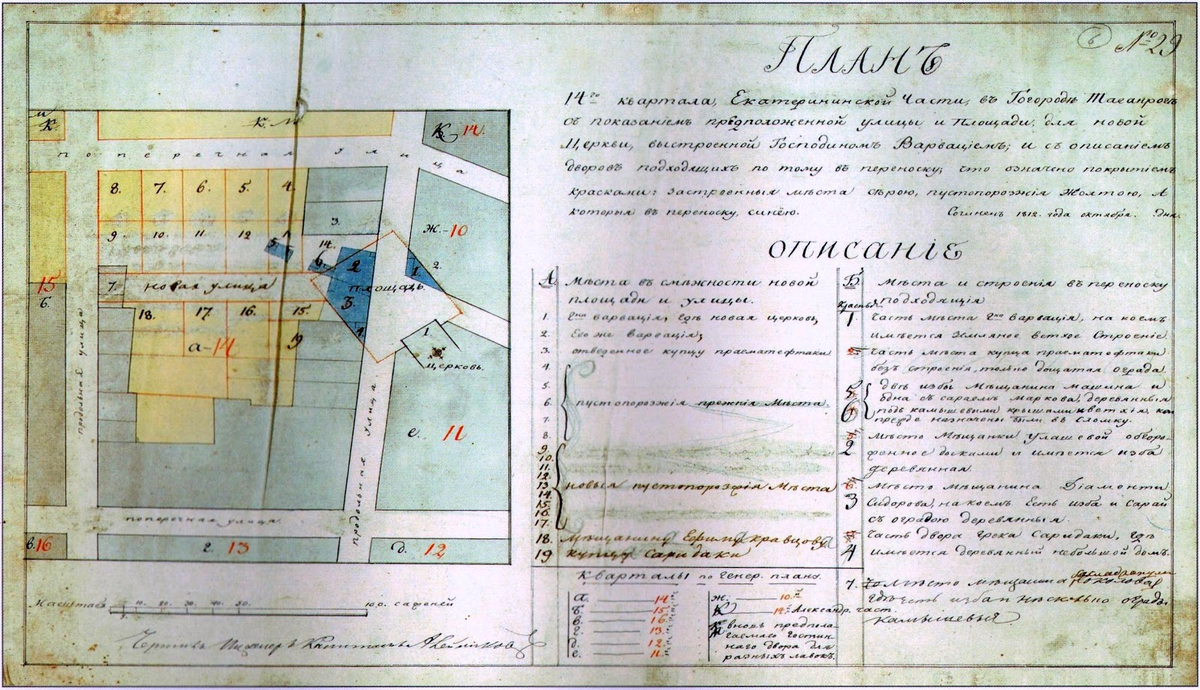 6 № 29
ПЛАНЪ
14го квартала, Екатерининской Части, въ Гогородѣ Таганрогѣ
съ показаніемъ предположенной улицы и Площади, для новой
Церкви, выстроенной Господиномъ Варваціемъ; и съ описаніемъ
дворовъ подходящихъ по тому въ переноску; что означено покрытіемъ
красками: застроенныя мѣста сѣрою, пустопорожнія жолтою, а
которыя въ переноску, синею. Сочиненъ 1812. года октября. дня.
ОПИСАНІЕ
А
Мѣста въ смѣжности новой
площади и улицы.
1 Гна варвація, гдѣ новая церковь,
2 Его же варвація;
3 отведенное купцу
4
5
6 пустопорзжія прежнія Мѣста
7
8
9
10.
11.
12.
13 новыя пустопорзжія Мѣста
14
15.
16.
17.
18. Мѣщанину Ефиму кравцову
19 купцу Саридаки
Б
Мѣста и строенія въ переноску
подходящія
1 Часть мѣста Гна варвація, на коемъ
имѣется Земляное ветхое Строеніе
часть мѣста купца
безъ строенія, токмо дощатая ограда.
5 двѣ избы Мѣщанина машина и
одна съ сараемъ Маркова, деревянныя
6 подъ камышевыми крышами, ветхія, ко
назначены были въ сломку.
2 Мѣсто Мѣщанки улашевой
досками и имѣется изба
деревянная
3 Мѣсто мѣщанина Діаманти
Сидорова, на коемъ Есть изба и Сарай
съ оградою деревянныя.
4 Часть двора грека Саридаки, гдѣ
имѣется деревянный небольшой домъ.
7. мѣсто мѣщанина
гдѣ есть изба и нѣсколько ограды
камышевыя
Кварталы по генер. плану.
а. 14
б. 15
в. 16
г. 13
д. 12
е. 11
ж. 10
К 14 Александр. част.
вновь предпола
гаемаго гостин
наго двора для
разныхъ лавокъ.
К.
К. М
К 14.
поперечная Улица
8. 7. 6. 5. 4.
3.
9 10. 11 12 1
5. 14. 6
2
ж. 10
1 2.
15
б.
7. новая улица
площадь.
3.
4
18. 17 16. 15.
а-14 19
1.
церковь.
продольная улица
продольная улица
е. 11
поперечная улица
в. 16
г. 13
д. 12
Масштабъ 10. 20. 30. 40. 50. 100. саженей
Чертилъ